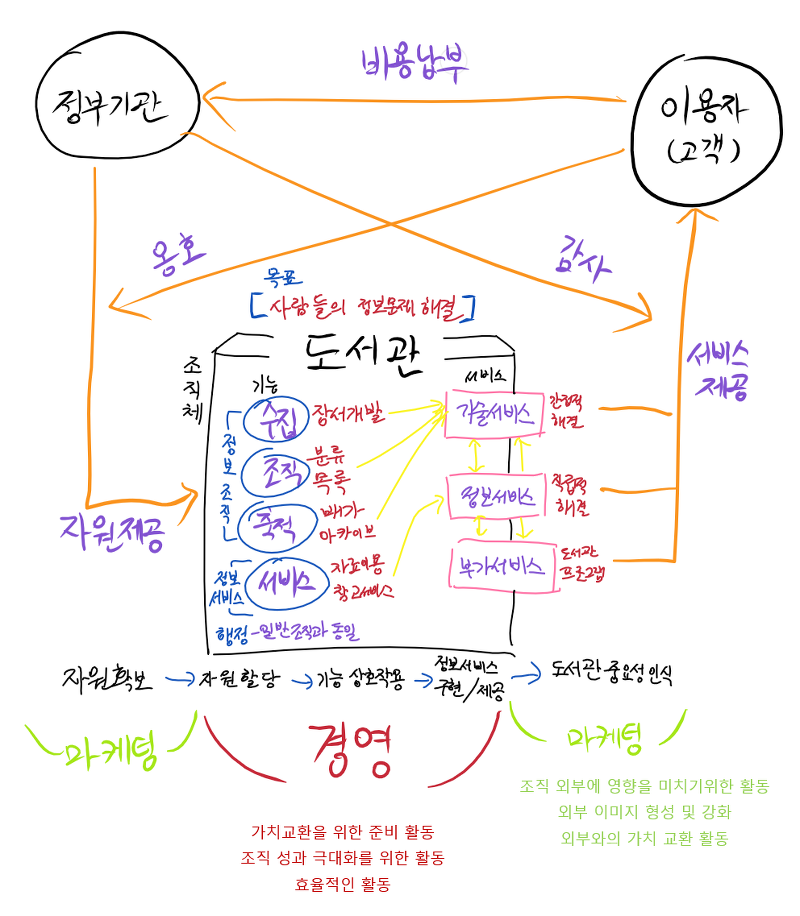 비용납부
정부기관
이용자
(고객)
옹호
감사
목표
[사람들의 정보문제 해결]
도서관
조직체
기능
서비스
서비스
제공
수집
장서개발
기술서비스
간접적
해결
정보조직
조직
분류
목록
정보서비스
직접적
해결
축적
배가
아카이브
부가서비스
도서관
프로그램
정보
서비스
서비스
자료이용
참고서비스
행정-일반조직과 동일
자원제공
자원확보 → 자원할당 → 기능 상호작용 → 정보서비스
구현/제공 → 도서관 중요성 인식
마케팅
경영
마케팅
조직 외부에 영향을 미치기위한 활동
외부 이미지 형성 및 강화
외부와의 가치 교환 활동
가치교환을 위한 준비 활동
조직 성과 극대화를 위한 활동
효율적인 활동